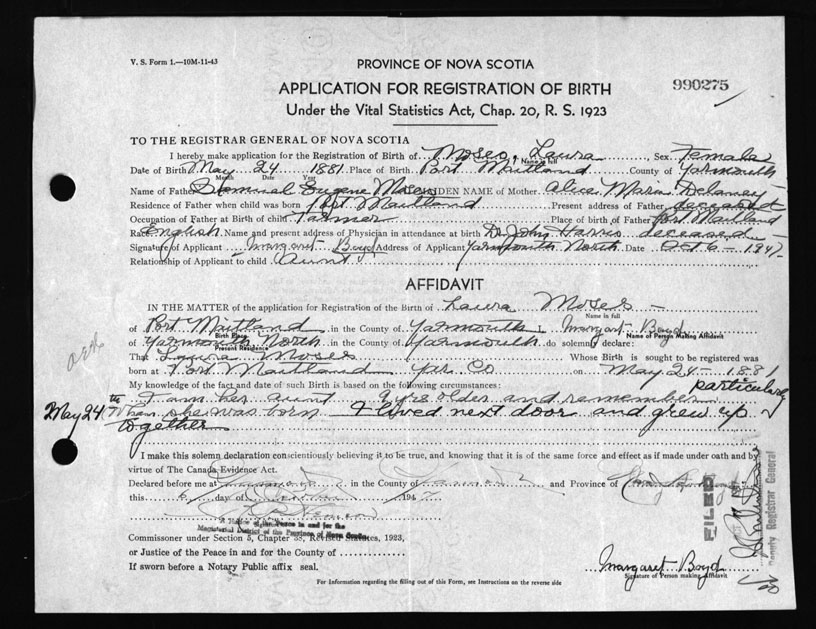 V. S. Form 1.—10M-11-43
PROVINCE OF NOVA SCOTIA
990275
APPLICATION FOR REGISTRATION OF BIRTH
Under the Vital Statistics Act, Chap. 20, R. S. 1923
TO THE REGISTRAR GENERAL OF NOVA SCOTIA
I hereby make application for the Registration of Birth of Moses, Laura Sex Female
Name in full
Date of Birth May 24 1881 Place of Birth Port Maitland County of Yarmouth
Month Date Year
Name of Father Eugene Moses MAIDEN NAME of Mother Alice Delaney
Residence of Father when child was born Port Maitland Present address of Father deceased
Occupation of Father at Birth of child Farmer Place of birth of Father Port Maitland
Race English Name and present address of Physician in attendance at birth Dr John Harris deceased
Signature of Applicant Margaret Boyd Address of Applicant Yarmouth North Date Oct 6 - 1947
Relationship of Applicant to child Aunt
AFFIDAVIT
IN THE MATTER of the application for Registration of the Birth of Laura Moses
Name in full
of Port Maitland in the County of Yarmouth I, Margaret Boyd
Birth Place Name of Person Making Affidavit
of Yarmouth North in the County of Yarmouth do solemnly declare:
Present Residence
That Laura Moses Whose Birth is sought to be registered was
born at Port Maitland Yar. Co on May 24 - 1881
My knowledge of the fact and date of such Birth is based on the following circumstances: particularly
I am her aunt 9 yrs older and remember
May 24th when she was born - I lived next door and grew up
together
I make this solemn declaration conscientiously believing it to be true, and knowing that it is of the same force and effect as if made under oath and by
virtue of The Canada Evidence Act.
Declared before me at in the County of and Province of
this 6 day of 1947
of the Peace in and for the
Magisterial District of the Province of Nova Scotia
Commissioner under Section 5, Chapter 38, Revised Statutes, 1923,
or Justice of the Peace in and for the County of
If sworn before a Notary Public affix seal.
Margaret Boyd
Signature of Person making Affidavit
For Information regarding the filling out of this Form, see Instructions on the reverse side
FILED
Deputy Registrar General